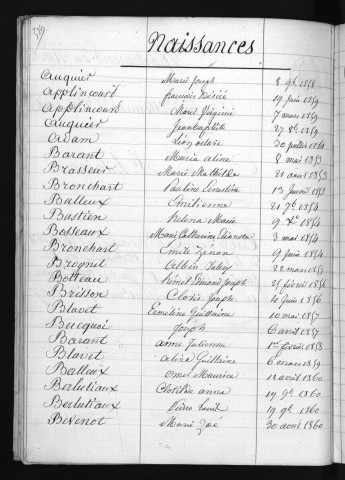 Naissances
Auquier Marie Joseph 8 9bre 1858
Applincourt François Désiré 19 juin 1859
Applincourt Marie Virginie 7 mars 1859
Auquier Jean baptiste 27 1859
Adam Léon octave 30 juillet 1861
Barant Maria aline 8 mai 1853
Brasseur Marie Mathilde 21 aout 1853
Bronchart Pauline Ernestine 13 1853
Balleux Emilienne 21 1854
Bastien Helena Marie 9 Xbre 1854
Bosseaux Marie Catherine Eléonore 3 mai 1854
Bronchart Emile Zénon 9 juin 1854
Brognet Albin Valery 22 mars 1853
Botteau Edmond Joseph 25 février 1856
Brisson Clovis Joseph 4 juin 1856
Blavet Guillaine 10 mai 1857
Bucquoi Joseph 6 avril 1857
Barant anne Julienne 1er février 1858
Blavet Guillaine 6 mars 1859
Balleux omer Maurice 12 avril 1860
Berlutiaux Clotilde anna 19 9bre 1860
Berlutiaux Pierre Louis 19 9bre 1860
Bevenot Marie Zoé 30 aout 1860